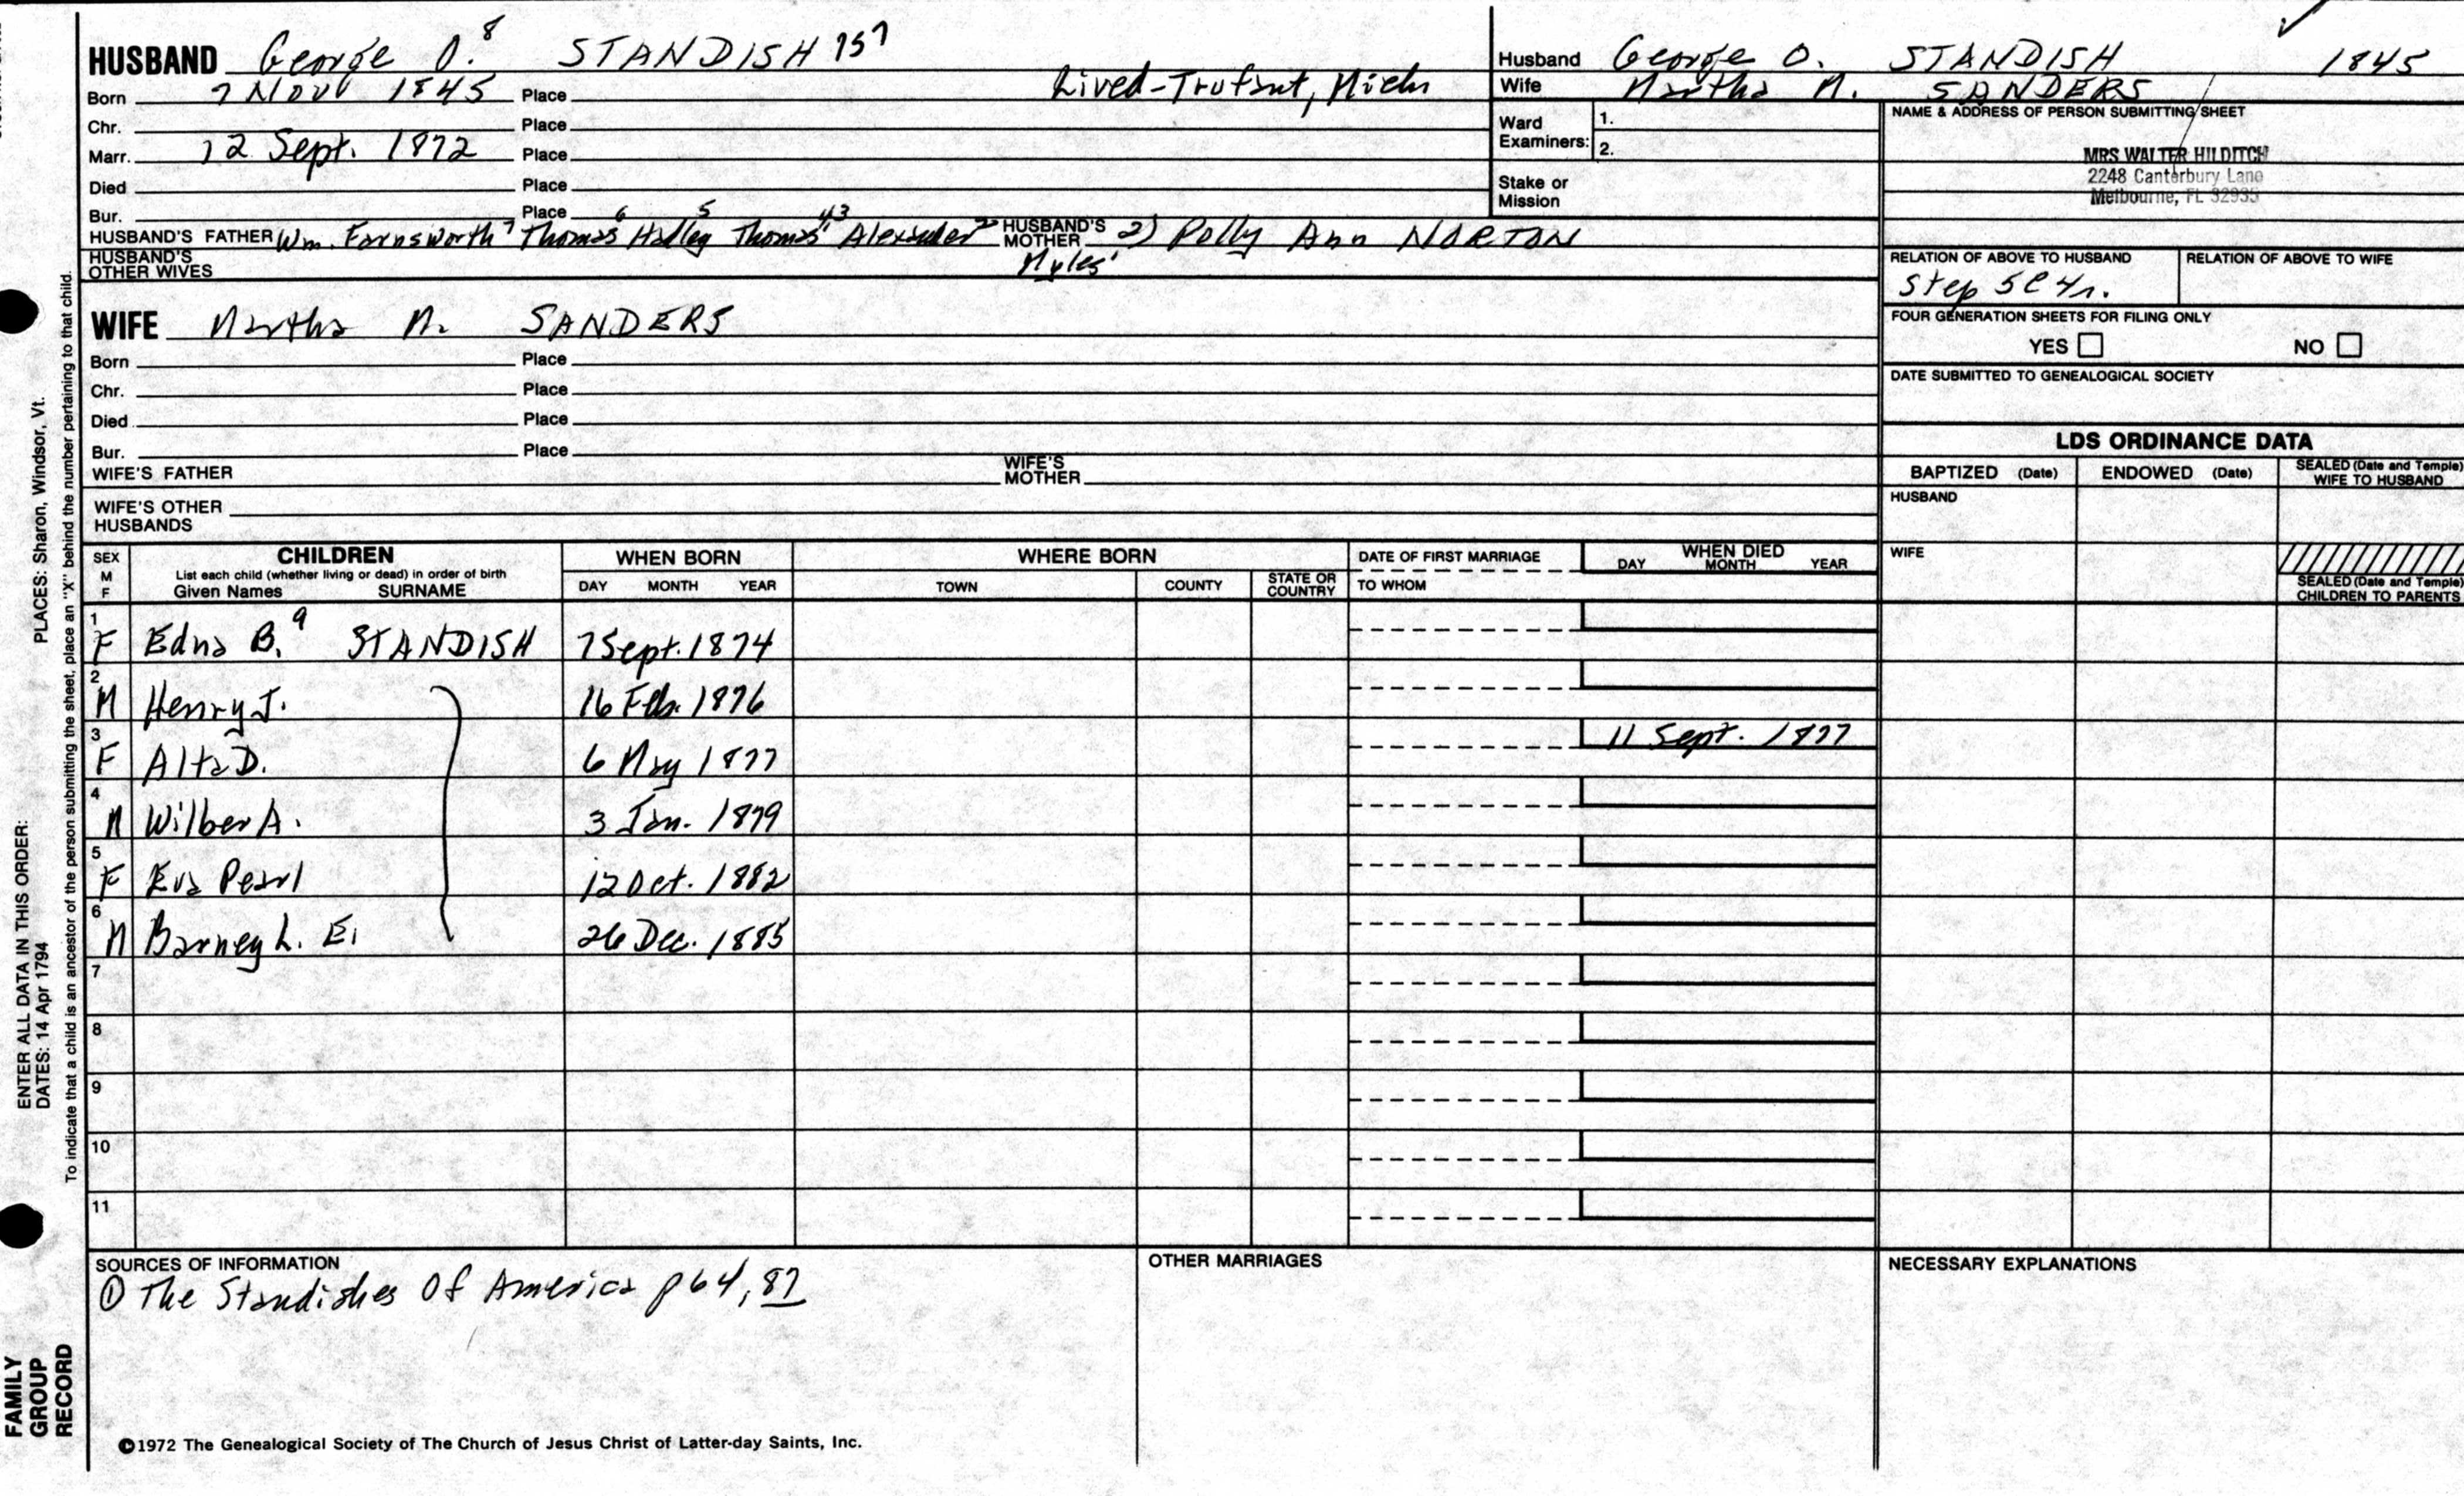 HUSBAND George O.8 STANDISH 757
Born 7 Nov 1845 Place Lived-Trufant, Mich
Chr. Place
Marr. 12 Sept. 1872 Place
Died Place
Bur. Place
HUSBAND'S FATHER Wm. Farnsworth7 Thomas6 Hadley Thomas5 Thomas43 Alexander2 Myles1 HUSBAND'S MOTHER 2) Polly Ann NORTON
HUSBAND'S OTHER WIVES
Husband George O. STANDISH 1845
Wife Martha M. SANDERS
Ward Examiners: 1.
2.
Stake or Mission
NAME & ADDRESS OF PERSON SUBMITTING SHEET
MRS WALTER HILDITCH
2248 Canterbury Lane
Melbourne, FL 32935
RELATION OF ABOVE TO HUSBAND RELATION OF ABOVE TO WIFE
Step 5C4r.
FOUR GENERATION SHEETS FOR FILING ONLY
YES NO
DATE SUBMITTED TO GENEALOGICAL SOCIETY
WIFE Martha M. SANDERS
Born Place
Chr. Place
Died Place
Bur. Place
WIFE'S FATHER WIFE'S MOTHER
WIFE'S OTHER HUSBANDS
LDS ORDINANCE DATA
BAPTIZED (Date) ENDOWED (Date) SEALED (Date and Temple) WIFE TO HUSBAND
HUSBAND
WIFE
SEALED (Date and Temple) CHILDREN TO PARENTS
SEX M F CHILDREN WHEN BORN WHERE BORN DATE OF FIRST MARRIAGE WHEN DIED
List each child (whether living or dead) in order of birth
Given Names SURNAME DAY MONTH YEAR TOWN COUNTY STATE OR COUNTRY TO WHOM DAY MONTH YEAR
1 F Edna B.9 STANDISH 7 Sept. 1874
2 M Henry J. 16 Feb. 1876
3 F Alta D. 6 May 1877 11 Sept. 1877
4 M Wilber A. 3 Jan. 1879
5 F Eva Pearl 12 Oct. 1882
6 M Barney L. E. 26 Dec. 1885
7
8
9
10
11
SOURCES OF INFORMATION
① The Standishes Of America p 64, 87
OTHER MARRIAGES
NECESSARY EXPLANATIONS
©1972 The Genealogical Society of The Church of Jesus Christ of Latter-day Saints, Inc.
ENTER ALL DATA IN THIS ORDER:
DATES: 14 Apr 1794 PLACES: Sharon, Windsor, Vt.
To indicate that a child is an ancestor of the person submitting the sheet, place an "X" behind the number pertaining to that child.
FAMILY GROUP RECORD